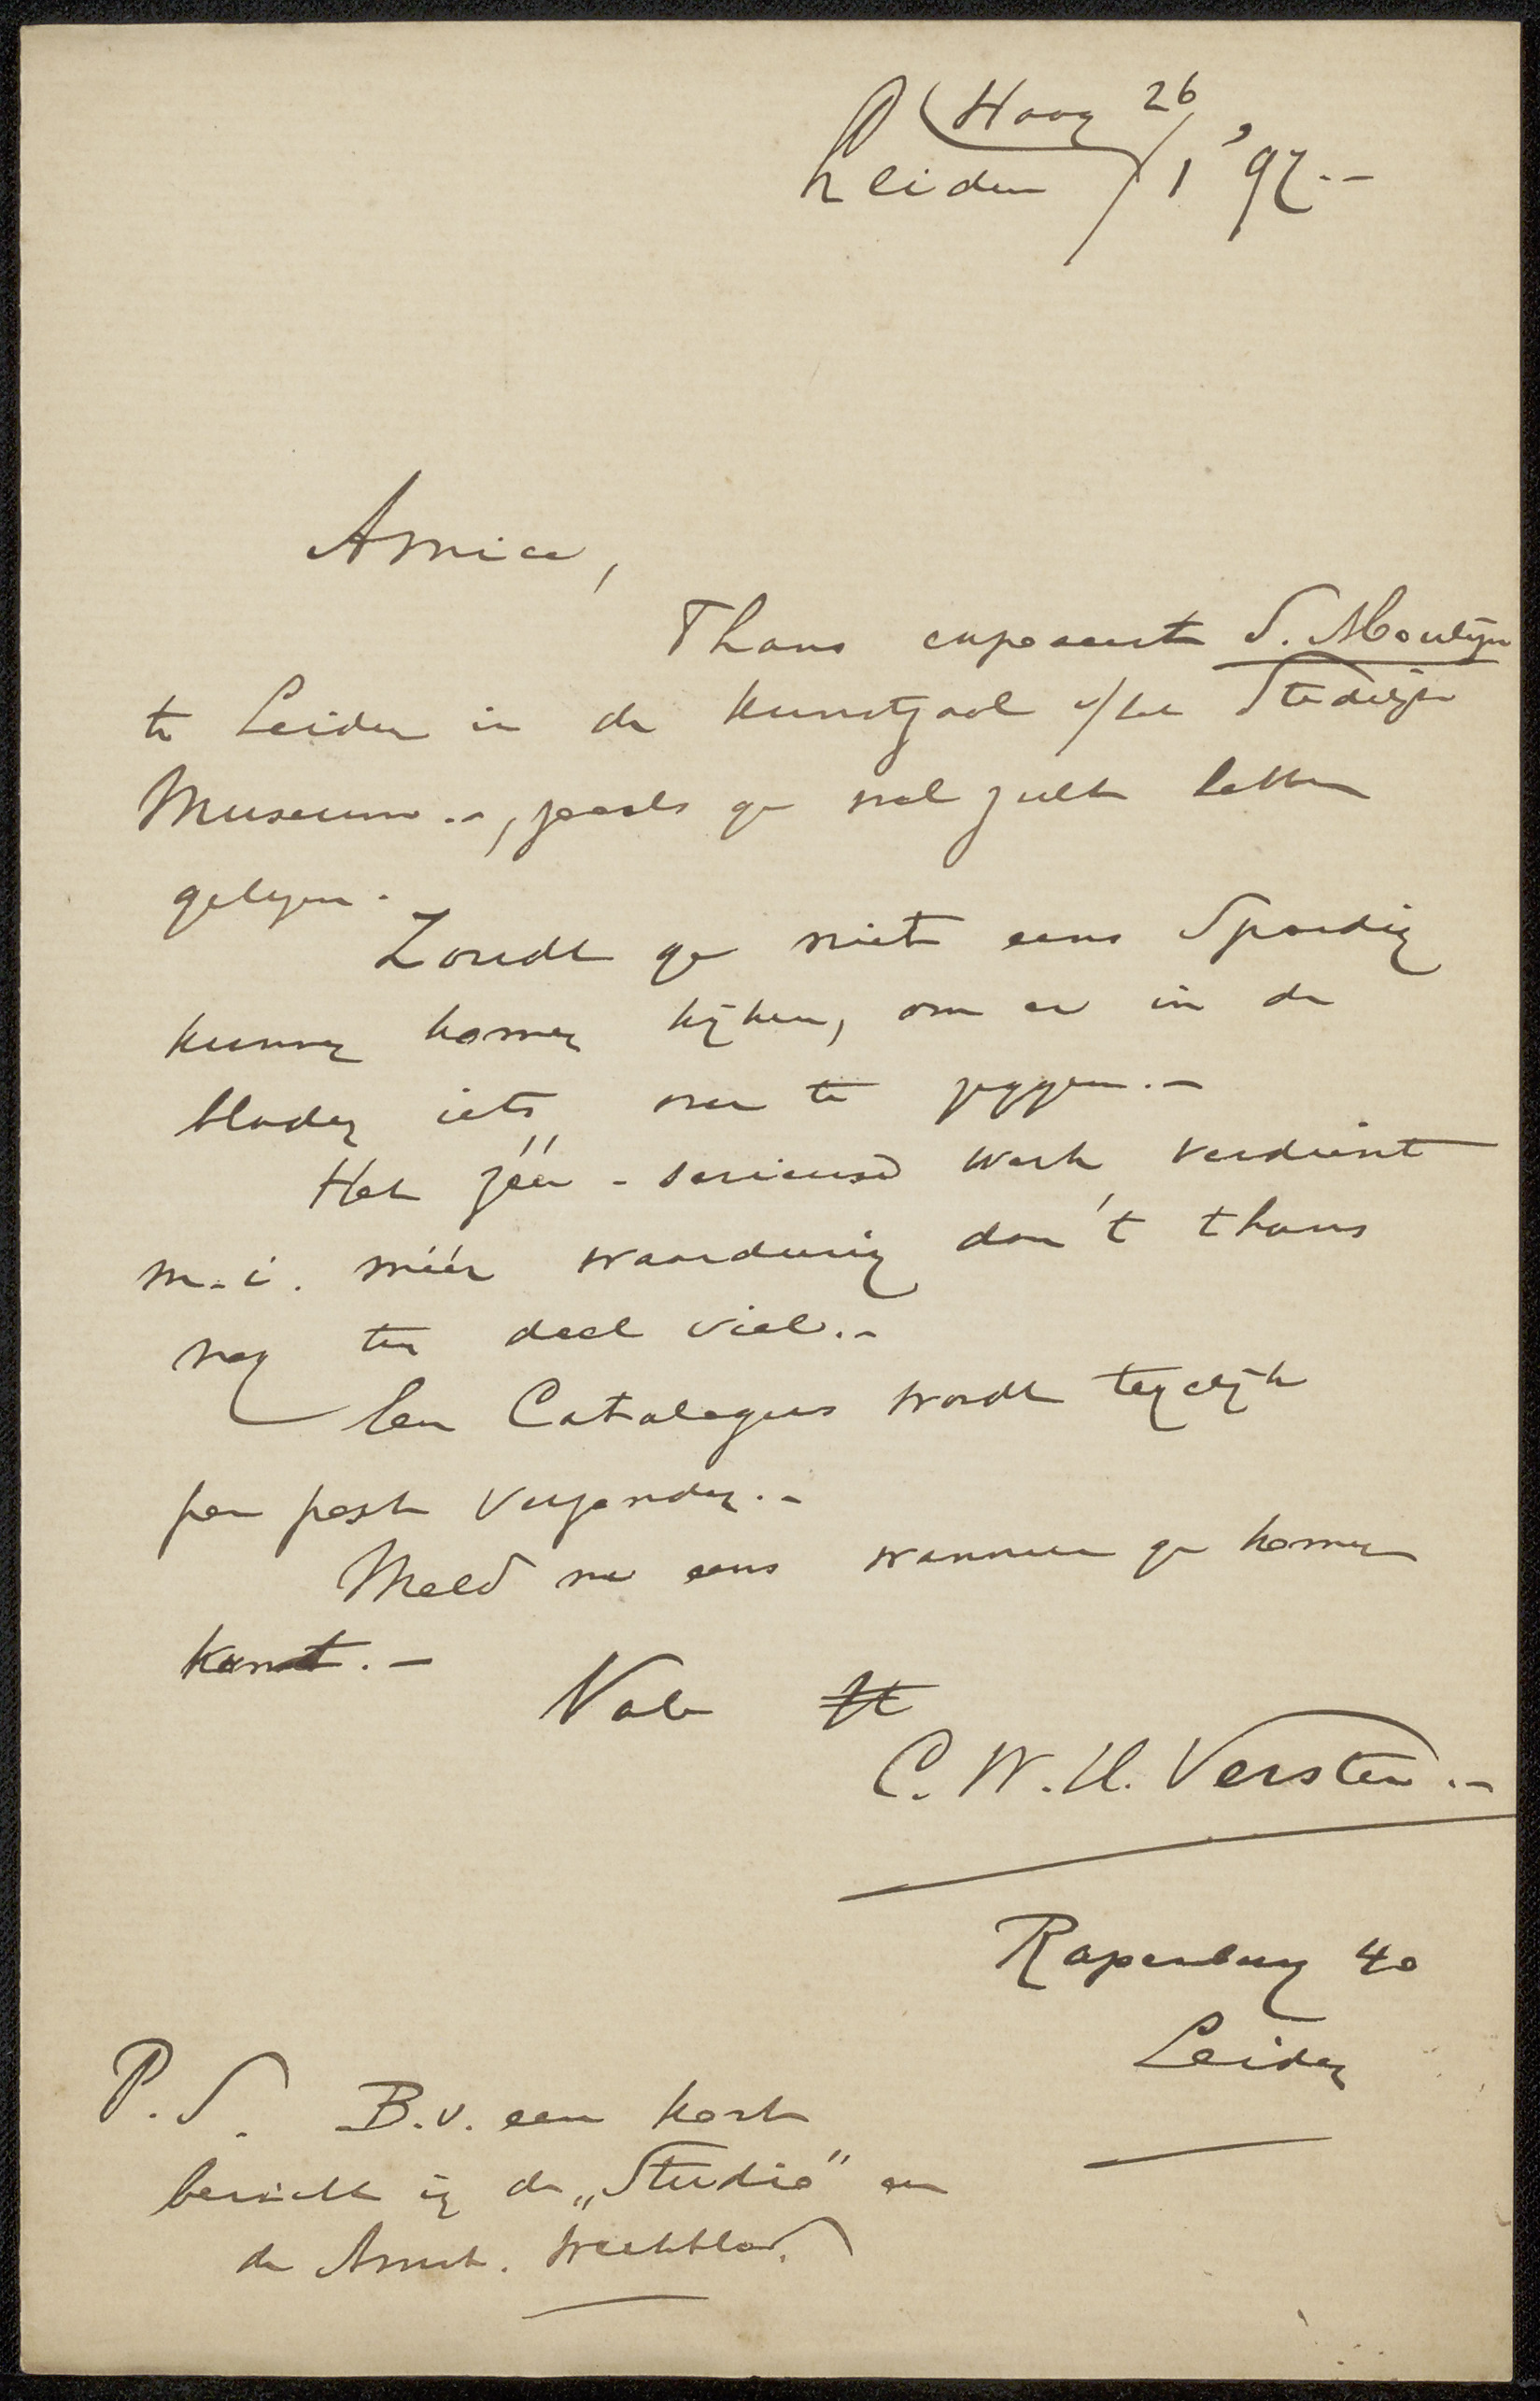 Haag 26
Leiden /1 '97.-
Amice,
Thans exposeert S. Moulijn
te Leiden in de kunstzaal v/het Stedelijk
Museum.-, zooals ge wel zult hebben
gelezen.
Zoudt ge niet eens spoedig
kunnen komen kijken, om er in de
bladen iets over te zeggen.-
Het zéér-serieuse werk verdient
m.i. méér waardeering dan 't thans
nog ten deel viel.-
Een Catalogus wordt tegelijk
per post verzonden.-
Meld me eens wanneer ge komen
kunt.-
Vale tt
C.W.H. Verster.-
Rapenburg 40
Leiden
P.S. B.v. een kort
bericht in de „Studio" en
de Amst. Weekblad.